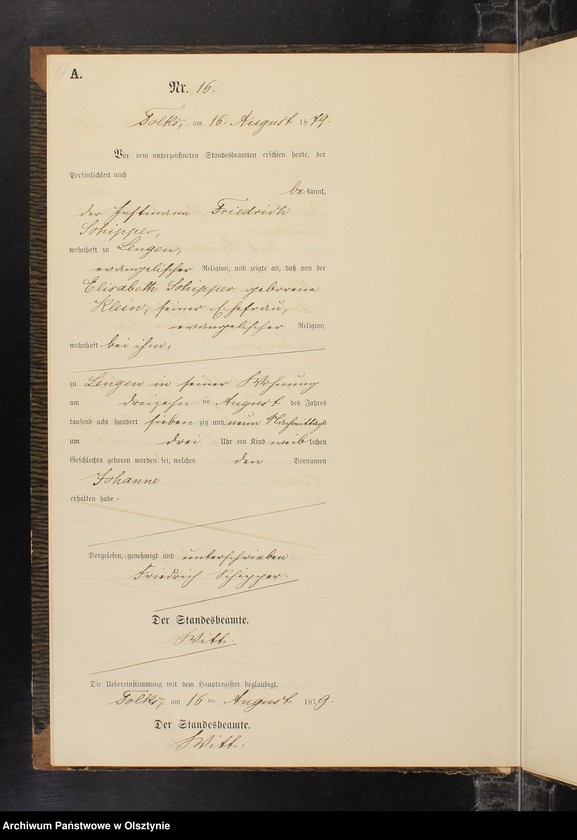 A.
Nr. 16.
Tolks, am 16. August 1879.
Vor dem unterzeichneten Standesbeamten erschien heute, der
Persönlichkeit nach
bekannt,
der Instmann Friedrich
Schipper,
wohnhaft zu Lengen,
evangelischer Religion, und zeigte an, daß von der
Elisabeth Schipper geborene
Klein, seiner Ehefrau,
evangelischer Religion,
wohnhaft bei ihm,
zu Lengen in seiner Wohnung
am dreizehnten August des Jahres
tausend acht hundert siebenzig und neun Nachmittags
um drei Uhr ein Kind weiblichen
Geschlechts geboren worden sei, welches den Vornamen
Johanne
erhalten habe.
Vorgelesen, genehmigt und unterschrieben
Friedrich Schipper.
Der Standesbeamte.
Witt.
Die Uebereinstimmung mit dem Hauptregister beglaubigt.
Tolks, am 16ten August 1879.
Der Standesbeamte.
Witt.
Archiwum Państwowe w Olsztynie